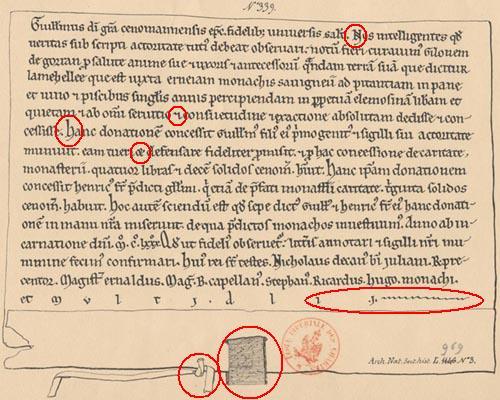 N° 339.
Guillmus dī grā cenomannensis epc. fidelib; universis salt. Nos intelligentes qd
veritas sub scripti actoritate tuti debeat observari. notū fieri curavim'
de gorran p salute anime sue & uxoris & antecessorū terrā suā que dicitur
lamehellee que est iuxta erneiam monachis savigneii ad pitantiam in pane
et vino & piscibus singlis annis percipiendam in ppetuā elemosinā libam et
quietam & ab omī servitio & consuetudine & exactione absolutam dedisse & con-
cessisse. Hanc donationem concessit Guillm' fili' ei' pmogenit' & sigilli sui actoritate
munivit. eam tueri & defensare fideliter pmisit. & p hac concessione de caritate
monasterii. quatuor libras & decē solidos cenom. hūit. Hanc ipam donationem
concessit henric' fr pdicti Gllmi. & de pfati monastii caritate. solidos
cenom. habuit. Hoc autem sciendū est qd sepe dict' Guill' & henric' fr ei' hanc donati-
onē in manu nrā miserunt. de qua pdictos monachos investivim'. Anno ab in-
carnatione dnī. M. C. lxxx. ut fideli' observet'. lrīs annotari & sigilli nri mu-
nimine fecim' confirmari. Hui' rei sr testes. Nicholaus decan' bī Juliani. R. pre-
centor. Magist' ernaldus. Mag'. B. capellan'. Stephan'. Ricardus. hugo. monachi.
et m u l t i. a l i i.
969
Arch. Nat. Sect. hist. L. N° 3.